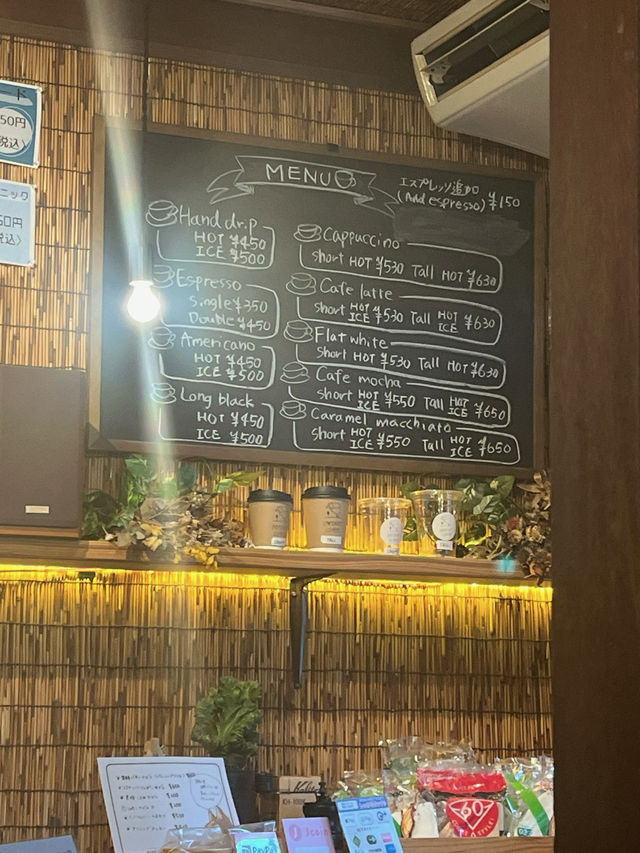 ード
50円
税込〉
ニック
50円
税込〉
MENU
エスプレッソ追加
(Add espresso) ¥150
Hand drip
HOT ¥450
ICE ¥500
Espresso
Single ¥350
Double ¥450
Americano
HOT ¥450
ICE ¥500
Long black
HOT ¥450
ICE ¥500
Cappuccino
Short HOT ¥530 Tall HOT ¥630
Cafe latte
Short HOT ICE ¥530 Tall HOT ICE ¥630
Flat white
Short HOT ¥530 Tall HOT ¥630
Cafe mocha
Short HOT ICE ¥550 Tall HOT ICE ¥650
Caramel macchiato
Short HOT ICE ¥550 Tall HOT ICE ¥650
60
PayPay
J-Coin